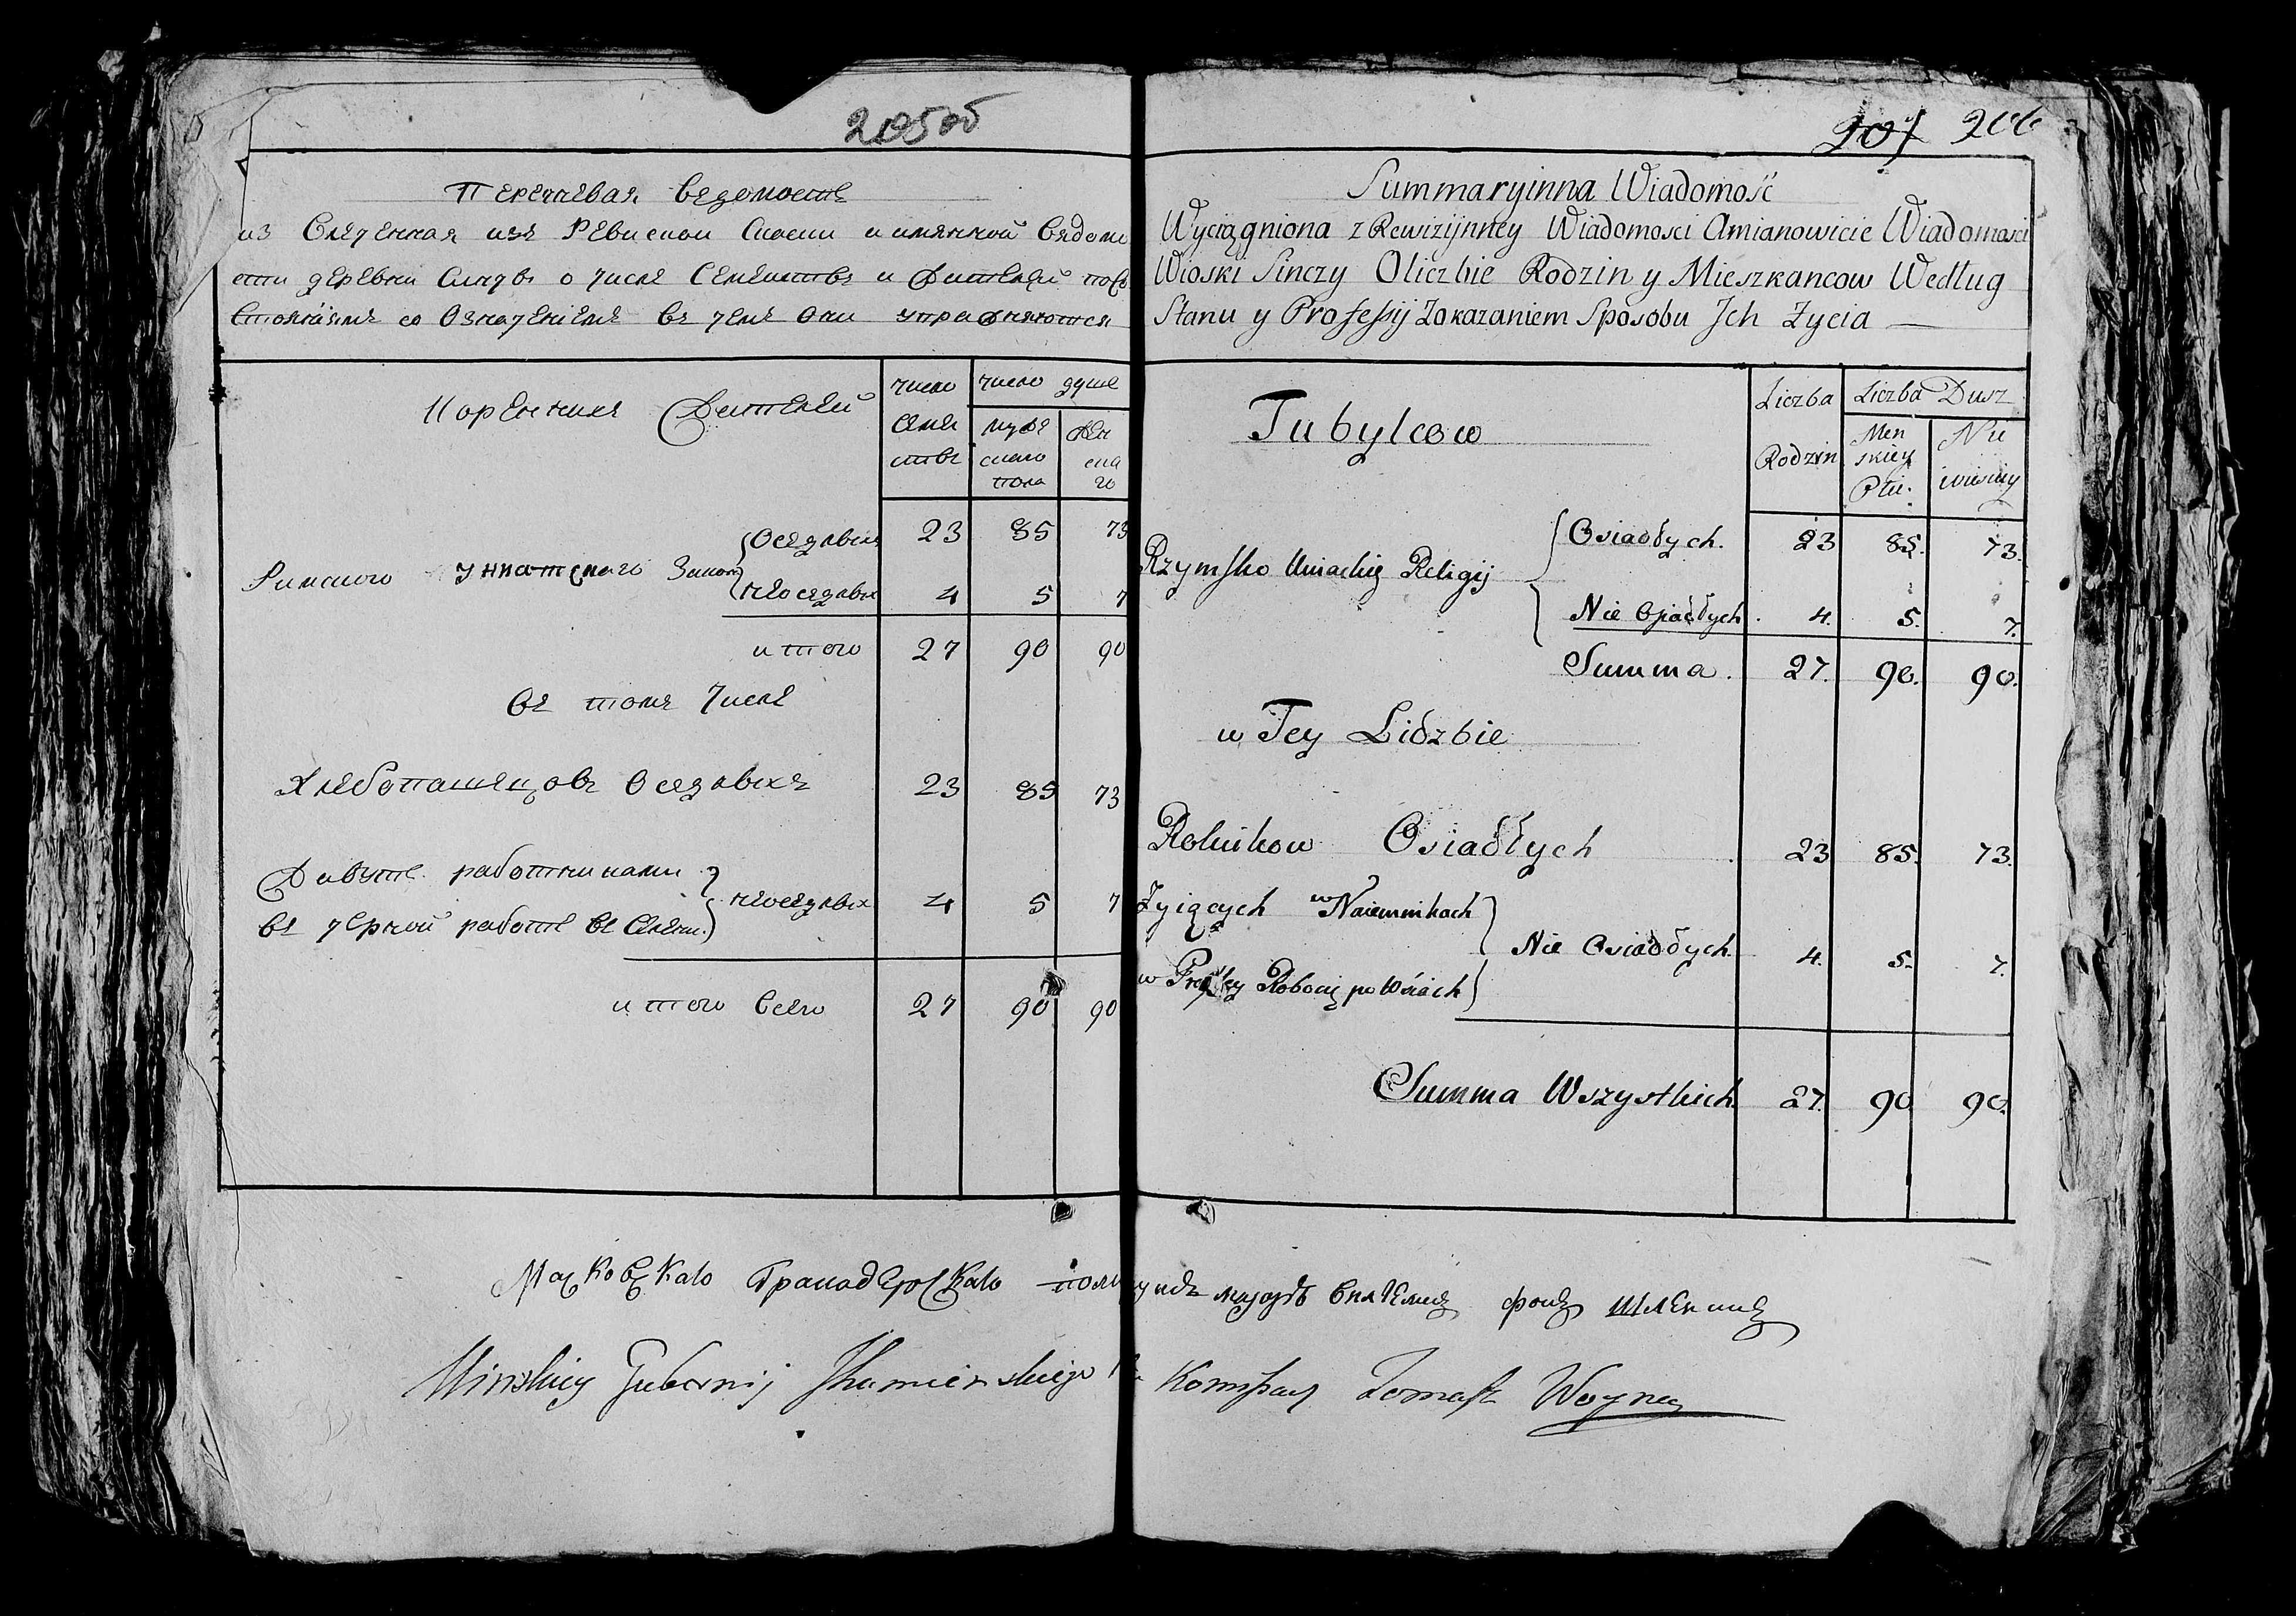 205об
Перечневая ведомость
из влеченная изъ Ревиской Скаски и имянной вядомо
сти деревни Синчъ о числе Семействъ и жителей по со
стояніямъ со Означеніемъ въ чемъ Они упражняются
Коренныя жителей
число Семействъ
число душъ
мужескаго пола
женскаго
Римского униатскаго Закона
Оседлыхъ 23 85 73
неоседлых 4 5 7
итого 27 90 90
въ томъ Числе
Хлебопашецовъ Оседлыхъ 23 85 73
Живутъ работниками
въ черной работе въ Селени. неоседлых 4 5 7
итого всего 27 90 90
207 206
Summaryinna Wiadomość
Wyciągniona z Rewizijnney Wiadomosci Amianowicie Wiadomosci
Wioski Sinczy Oliczbie Rodzin y Mieszkancow Według
Stanu y Professyi Zokazaniem Sposobu Jch Zycia
Tubylcow
Liczba Rodzin
Liczba Dusz
Menskiey Płci.
Niewiesciey
Rzymsko Uniackię Religij
Osiadłych. 23 85. 73.
Nie Osiadłych. 4. 5. 7.
Summa. 27. 90. 90.
w Tey Lidzbie
Rolnikow Osiadłych 23 85. 73.
Zyiących w Naiemnikach
w Prostey Robocie po Wsiach Nie Osiadłych. 4. 5. 7.
Summa Wszystkich. 27. 90 90.
Московскаго Гранодерскаго полку
маіоръ Вилгелмъ фонъ
Minskiey Gubernij
Tomasz Woyna